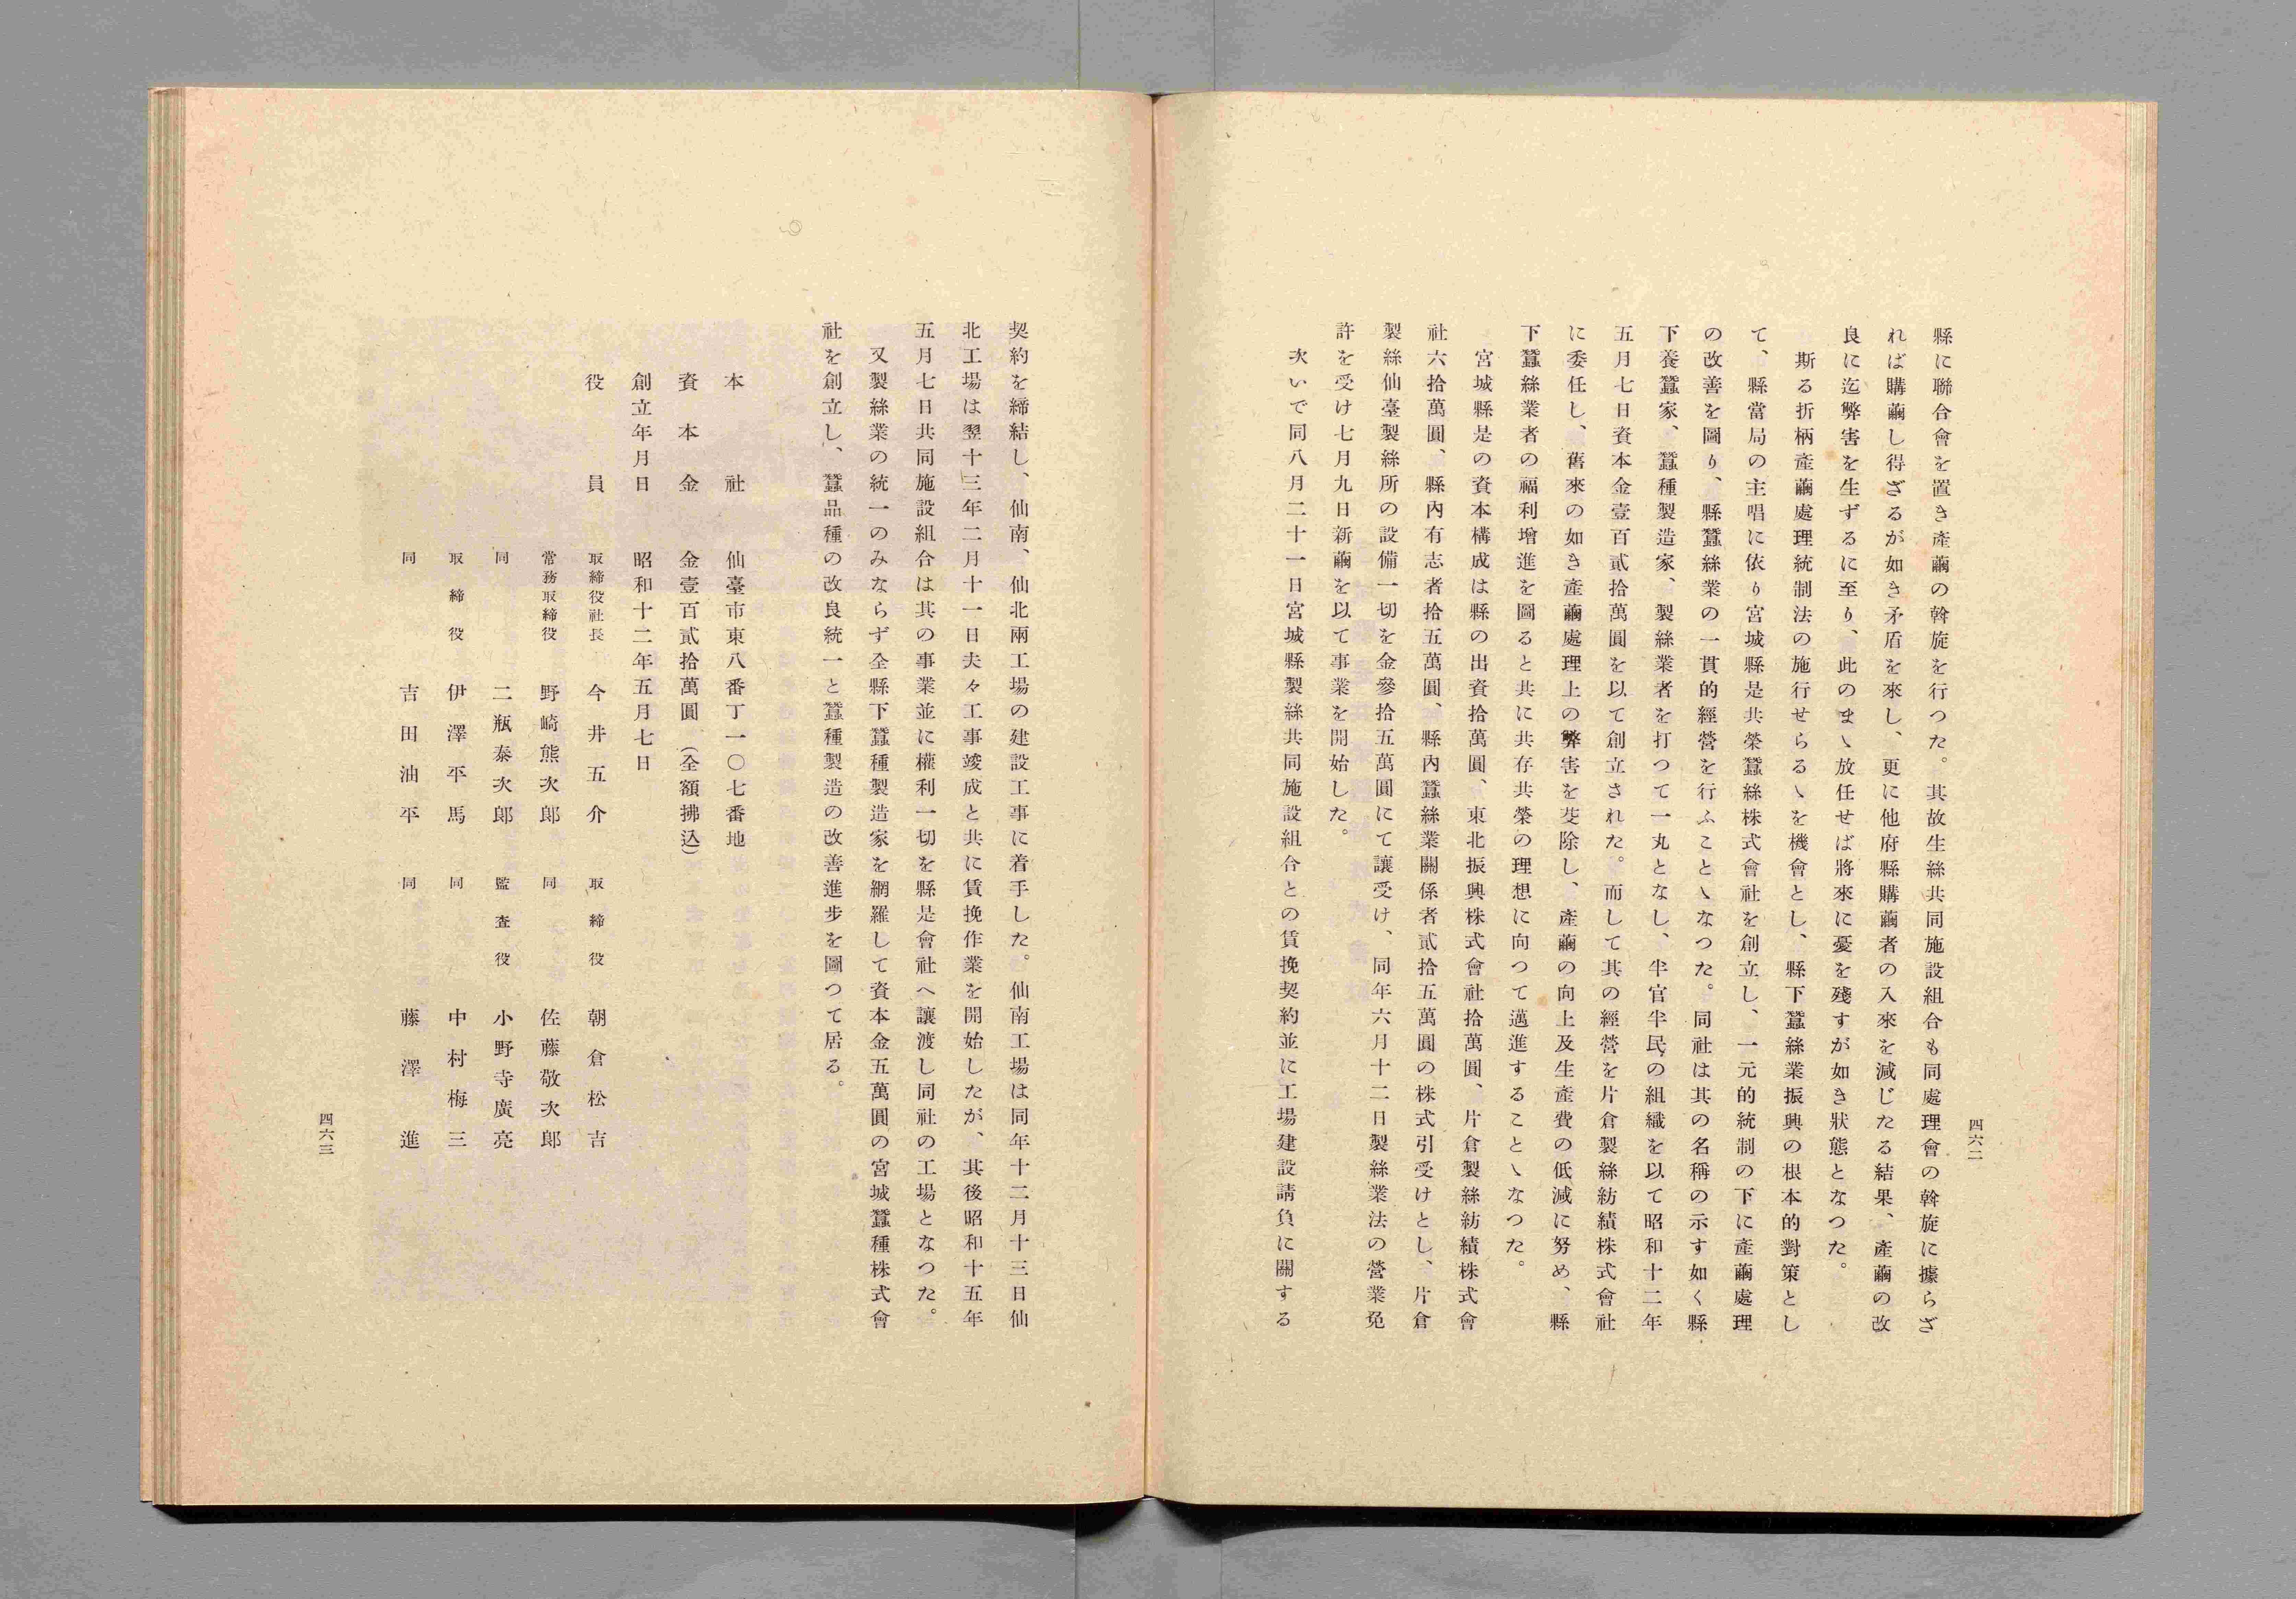 縣に聯合會を置き產繭の斡旋を行つた。其故生絲共同施設組合も同處理會の斡旋に據らざ
れば購繭し得ざるが如き矛盾を來し、更に他府縣購繭者の入來を減じたる結果、產繭の改
良に迄弊害を生ずるに至り、此のまゝ放任せば將來に憂を殘すが如き狀態となつた。
斯る折柄產繭處理統制法の施行せらるゝを機會とし、縣下蠶絲業振興の根本的對策とし
て、縣當局の主唱に依り宮城縣是共榮蠶絲株式會社を創立し、一元的統制の下に產繭處理
の改善を圖り、縣蠶絲業の一貫的經營を行ふことゝなつた。同社は其の名稱の示す如く縣
下養蠶家、蠶種製造家、製絲業者を打つて一丸となし、半官半民の組織を以て昭和十二年
五月七日資本金壹百貳拾萬圓を以て創立された。而して其の經營を片倉製絲紡績株式會社
に委任し、舊來の如き產繭處理上の弊害を芟除し、產繭の向上及生產費の低減に努め、縣
下蠶絲業者の福利增進を圖ると共に共存共榮の理想に向つて邁進することゝなつた。
宮城縣是の資本構成は縣の出資拾萬圓、東北振興株式會社拾萬圓、片倉製絲紡績株式會
社六拾萬圓、縣內有志者拾五萬圓、縣內蠶絲業關係者貳拾五萬圓の株式引受けとし、片倉
製絲仙臺製絲所の設備一切を金參拾五萬圓にて讓受け、同年六月十二日製絲業法の營業免
許を受け七月九日新繭を以て事業を開始した。
次いで同八月二十一日宮城縣製絲共同施設組合との賃挽契約並に工場建設請負に關する
四六二
契約を締結し、仙南、仙北兩工場の建設工事に着手した。仙南工場は同年十二月十三日仙
北工場は翌十三年二月十一日夫々工事竣成と共に賃挽作業を開始したが、其後昭和十五年
五月七日共同施設組合は其の事業並に權利一切を縣是會社へ讓渡し同社の工場となつた。
又製絲業の統一のみならず全縣下蠶種製造家を網羅して資本金五萬圓の宮城蠶種株式會
社を創立し、蠶品種の改良統一と蠶種製造の改善進步を圖つて居る。
本社 仙臺市東八番丁一〇七番地
資本金 金壹百貳拾萬圓(全額拂込)
創立年月日 昭和十二年五月七日
役員 取締役社長 今井五介 取締役 朝倉松吉
常務取締役 野崎熊次郎 同 佐藤敬次郎
同 二瓶泰次郎 監査役 小野寺廣亮
取締役 伊澤平馬 同 中村梅三
同 吉田油平 同 藤澤進
四六三